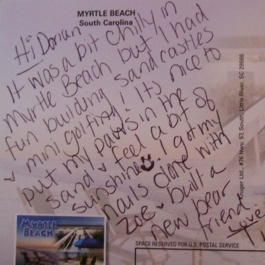 MYRTLE BEACH
South Carolina
Hi Dorian!
It was a bit chilly in
Myrtle Beach but I had
fun building sandcastles
& mini golfing. It's nice to
put my paws in the
sand & feel a bit of
sunshine I got my
nails done with
Zoe & built a
new bear
friend.
Love
MYRTLE
BEACH
SPACE RESERVED FOR U.S. POSTAL SERVICE